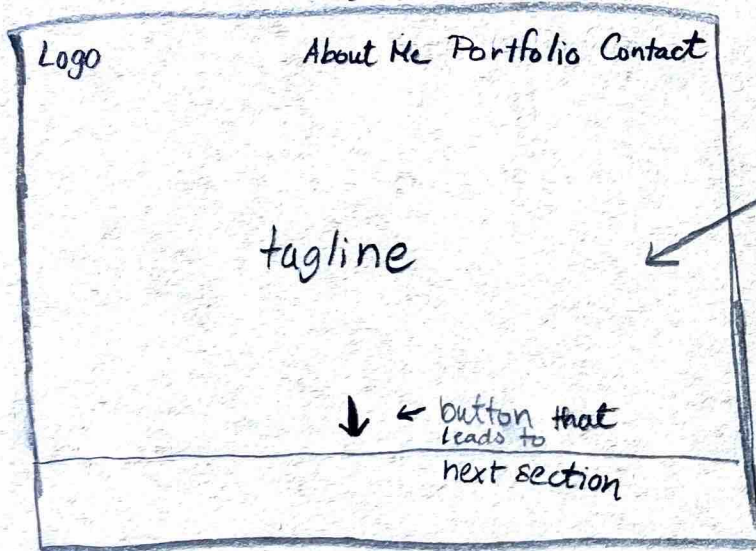 Logo
About Me Portfolio Contact
tagline
button that
leads to
next section